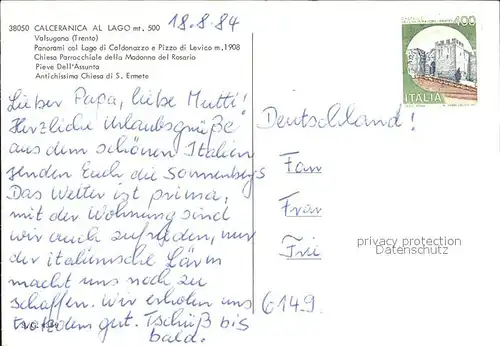 38050 CALCERANICA AL LAGO mt. 500
Valsugana (Trento)
Panorami col Lago di Caldonazzo e Pizzo di Levico m. 1908
Chiesa Parrocchiale della Madonna del Rosario
Pieve Dell'Assunta
Antichissima Chiesa di S. Ermete
18.8.84
400
ITALIA
Lieber Papa, liebe Mutti!
Herzliche Urlaubsgrüße
aus dem schönen Italien
senden Euch die Sonnenbergs
Das Wetter ist prima,
mit der Wohnung sind
wir auch zufrieden, nur
der italienische Lärm
macht uns noch zu
schaffen. Wir erholen uns
trotzdem gut. Tschüß bis
bald.
Deutschland!
Fam
Fran
Fri
privacy protection
Datenschutz
6149.